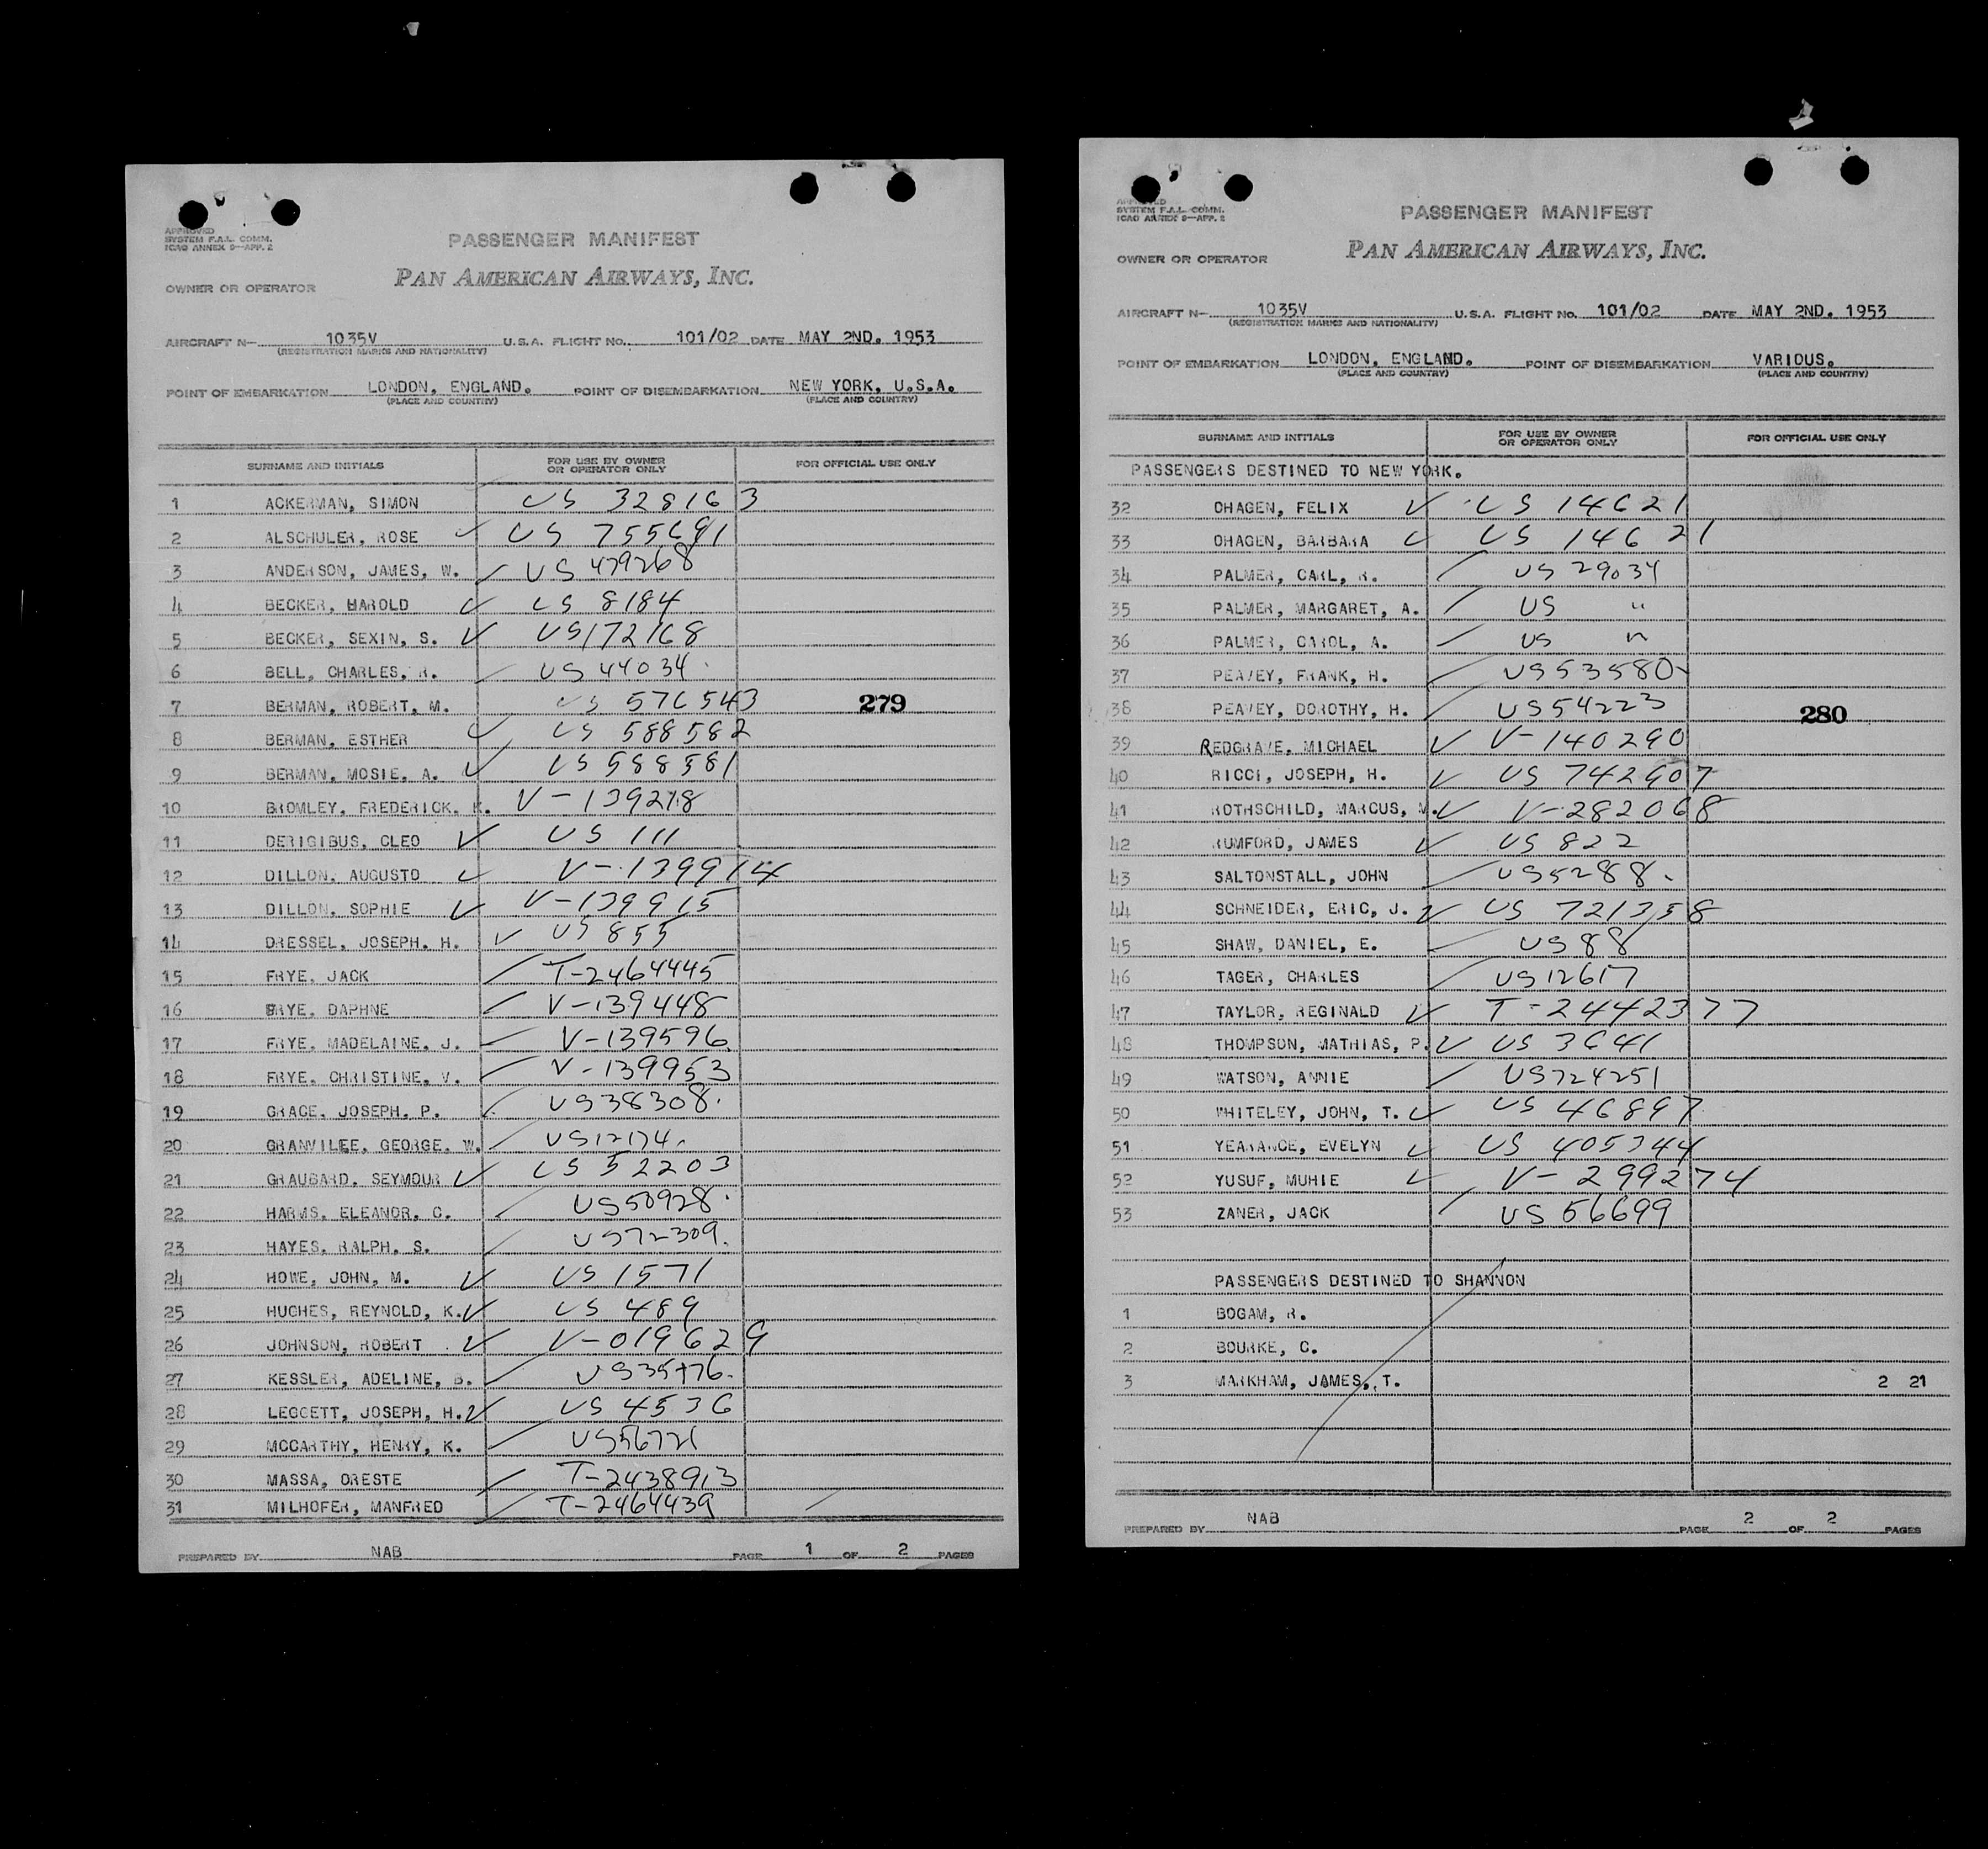 APPROVED
SYSTEM F.A.L. COMM.
ICAO ANNEX 9—APP. 2
PASSENGER MANIFEST
PAN AMERICAN AIRWAYS, INC.
OWNER OR OPERATOR
AIRCRAFT N— 1035V U.S.A. FLIGHT NO. 101/02 DATE MAY 2ND. 1953
(REGISTRATION MARKS AND NATIONALITY)
POINT OF EMBARKATION LONDON, ENGLAND. POINT OF DISEMBARKATION NEW YORK, U.S.A.
(PLACE AND COUNTRY) (PLACE AND COUNTRY)
SURNAME AND INITIALS FOR USE BY OWNER OR OPERATOR ONLY FOR OFFICIAL USE ONLY
1 ACKERMAN, SIMON US 328163
2 ALSCHULER, ROSE US 755691
3 ANDERSON, JAMES, W. US 479268
4 BECKER, HAROLD US 8184
5 BECKER, SEXIN, S. US172168
6 BELL, CHARLES, R. US 44034
7 BERMAN, ROBERT, M. US 576543 279
8 BERMAN, ESTHER US 588582
9 BERMAN, MOSIE, A. US 588581
10 BROMLEY, FREDERICK, K. V-139278
11 DERIGIBUS, CLEO US 111
12 DILLON, AUGUSTO V-139914
13 DILLON, SOPHIE V-139915
14 DRESSEL, JOSEPH, H. US 855
15 FRYE, JACK T-2464445
16 FRYE, DAPHNE V-139448
17 FRYE, MADELAINE, J. V-139596
18 FRYE, CHRISTINE, V. V-139953
19 GRACE, JOSEPH, P. US38308.
20 GRANVILEE, GEORGE, W. US12174.
21 GRAUBARD, SEYMOUR US 52203
22 HARMS, ELEANOR, C. US50928.
23 HAYES, RALPH, S. US72309.
24 HOWE, JOHN, M. US 1571
25 HUGHES, REYNOLD, K. US 489
26 JOHNSON, ROBERT V-019629
27 KESSLER, ADELINE, B. US35776.
28 LEGGETT, JOSEPH, H. US 4536
29 MCCARTHY, HENRY, K. US56721
30 MASSA, ORESTE T-2438913
31 MILHOFER, MANFRED T-2464439
PREPARED BY NAB PAGE 1 OF 2 PAGES
APPROVED
SYSTEM F.A.L. COMM.
ICAO ANNEX 9—APP. 2
PASSENGER MANIFEST
PAN AMERICAN AIRWAYS, INC.
OWNER OR OPERATOR
AIRCRAFT N— 1035V U.S.A. FLIGHT NO. 101/02 DATE MAY 2ND. 1953
(REGISTRATION MARKS AND NATIONALITY)
POINT OF EMBARKATION LONDON, ENGLAND. POINT OF DISEMBARKATION VARIOUS.
(PLACE AND COUNTRY) (PLACE AND COUNTRY)
SURNAME AND INITIALS FOR USE BY OWNER OR OPERATOR ONLY FOR OFFICIAL USE ONLY
PASSENGERS DESTINED TO NEW YORK.
32 OHAGEN, FELIX US 14621
33 OHAGEN, BARBARA US 14621
34 PALMER, CARL, R. US 29034
35 PALMER, MARGARET, A. US "
36 PALMER, CAROL, A. US "
37 PEAVEY, FRANK, H. US53580
38 PEAVEY, DOROTHY, H. US54223 280
39 REDGRAVE, MICHAEL V-140290
40 RICCI, JOSEPH, H. US 742907
41 ROTHSCHILD, MARCUS, M. V-282068
42 RUMFORD, JAMES US 822
43 SALTONSTALL, JOHN US5288.
44 SCHNEIDER, ERIC, J. US 721358
45 SHAW, DANIEL, E. US88
46 TAGER, CHARLES US12617
47 TAYLOR, REGINALD T-2442377
48 THOMPSON, MATHIAS, P. US 3641
49 WATSON, ANNIE US724251
50 WHITELEY, JOHN, T. US 46897
51 YEARANCE, EVELYN US 405344
52 YUSUF, MUHIE V-299274
53 ZANER, JACK US 56699
PASSENGERS DESTINED TO SHANNON
1 BOGAM, R.
2 BOURKE, C.
3 MARKHAM, JAMES, T. 2 21
PREPARED BY NAB PAGE 2 OF 2 PAGES